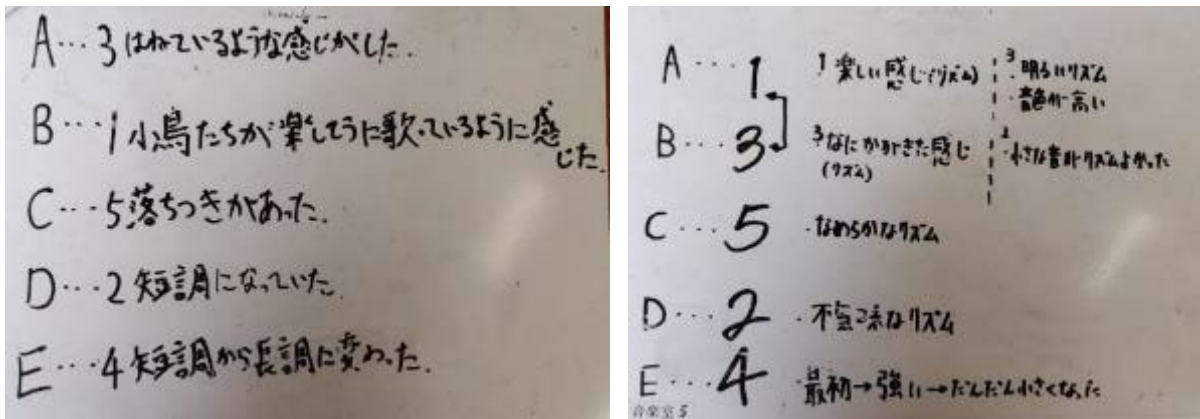 A…3 はねているような感じがした.
B…1 小鳥たちが楽しそうに歌っているように感じた.
C…5 落ちつきがあった.
D…2 短調になっていた.
E…4 短調から長調に変わった.
A…1 1楽しい感じ(リズム) 3・明るいリズム
・音色が高い
B…3 3なにかがきた感じ
(リズム) 2・小さな音 リズムよかった
C…5 ・なめらかなリズム
D…2 ・不気味なリズム
E…4 ・最初→強い→だんだん小さくなった
音楽室5